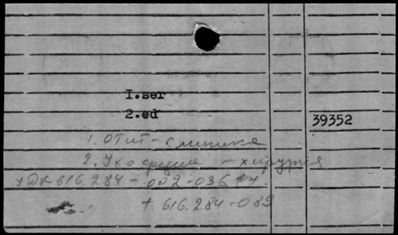 I.ser
2.ed
39352
1. Отит - клиника
2. Ухо среднее - хирургия
УДК 616.284-002-036.11
+ 616.284-089